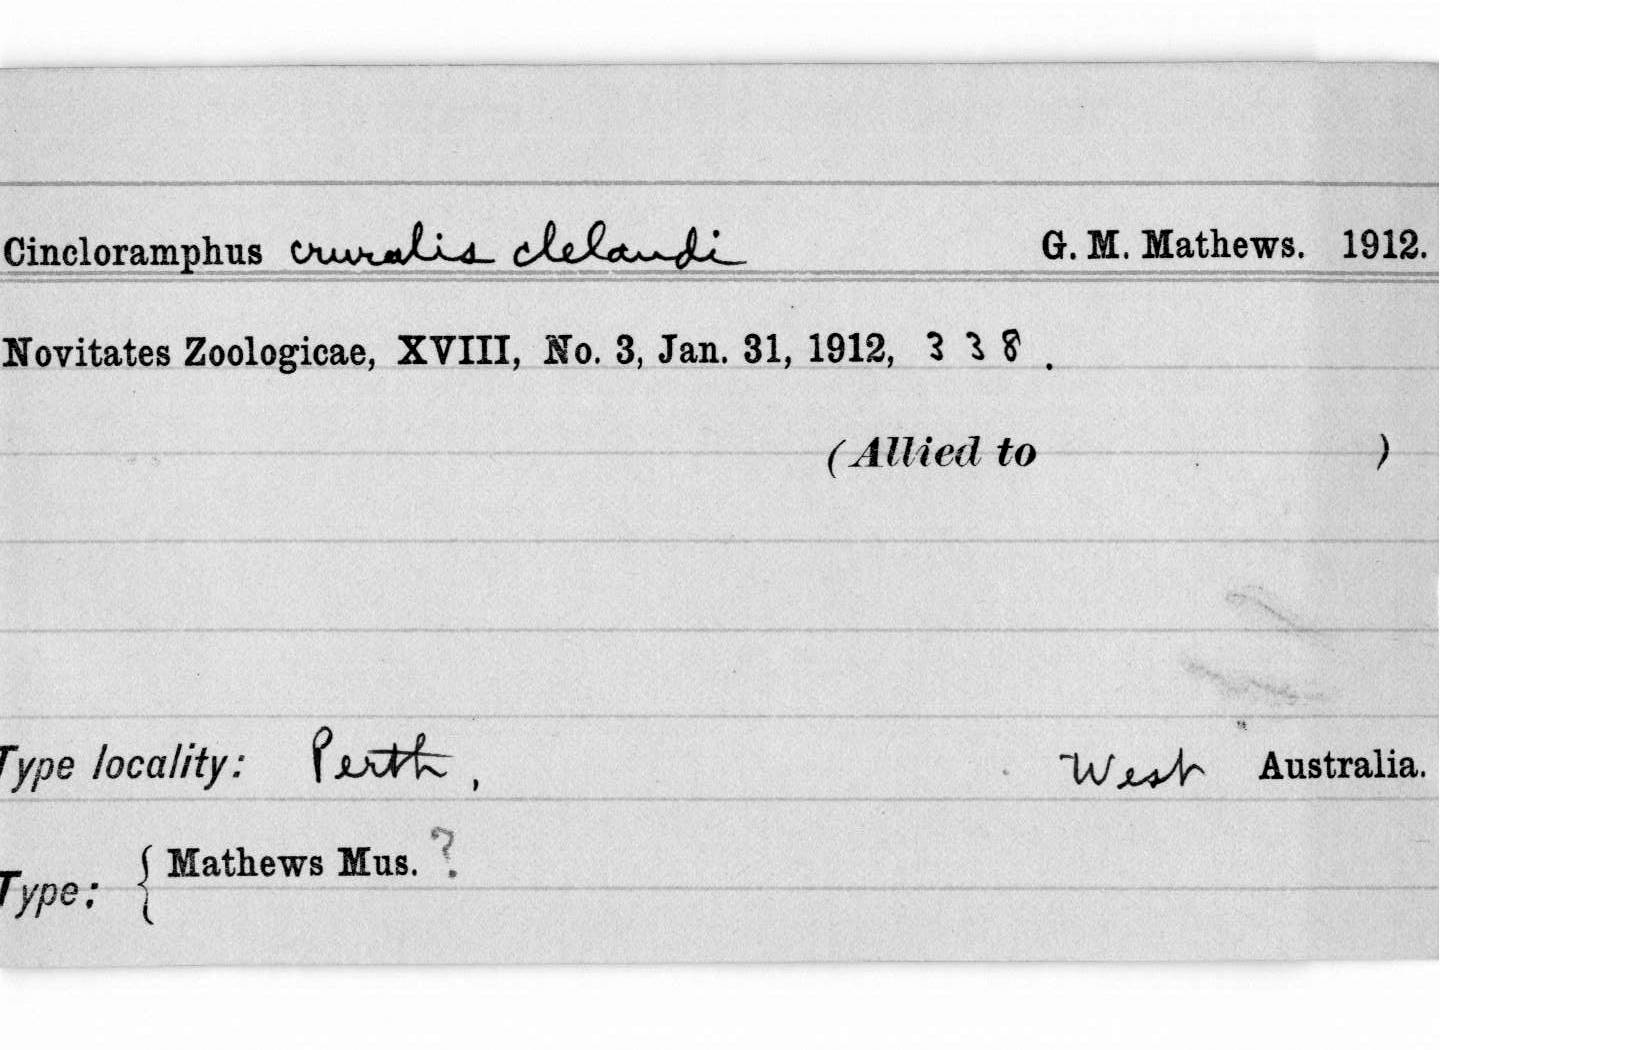 Cincloramphus cruralis clelandi G. M. Mathews. 1912.
Novitates Zoologicae, XVIII, No. 3, Jan. 31, 1912, 338.
(Allied to )
Type locality: Perth, West Australia.
Type: { Mathews Mus. ?